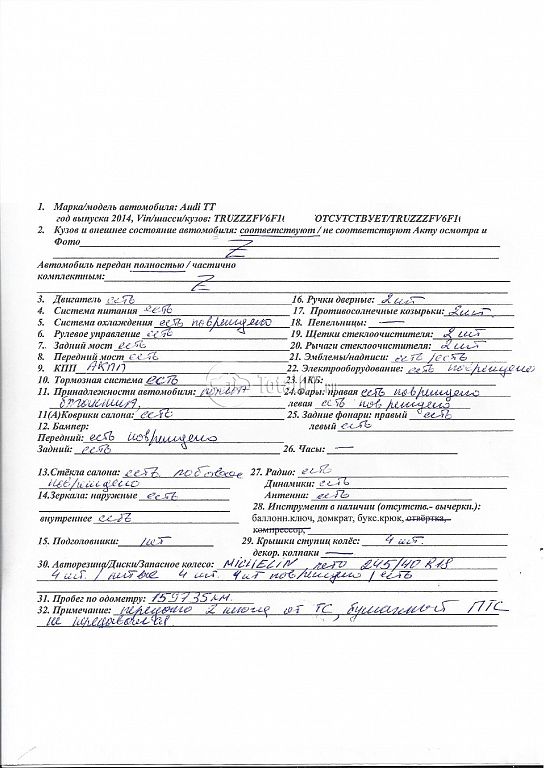 1. Марка/модель автомобиля: Audi TT
год выпуска 2014, Vin/шасси/кузов: TRUZZZFV6F1( ОТСУТСТВУЕТ/TRUZZZFV6F1(
2. Кузов и внешнее состояние автомобиля: соответствуют / не соответствуют Акту осмотра и
Фото Z
Автомобиль передан полностью / частично
комплектным: Z
3. Двигатель есть 16. Ручки дверные: 2 шт
4. Система питания есть 17. Противосолнечные козырьки: 2 шт.
5. Система охлаждения есть повреждено 18. Пепельницы: —
6. Рулевое управление есть 19. Щетки стеклоочистителя: 2 шт
7. Задний мост есть 20. Рычаги стеклоочистителя: 2 шт
8. Передний мост есть 21. Эмблемы/надписи: есть /есть
9. КПП АКПП 22. Электрооборудование: есть повреждено
10. Тормозная система есть 23. АКБ:
11. Принадлежности автомобиля: 24. Фары: правая есть повреждено
левая есть повреждено
11(А)Коврики салона: есть 25. Задние фонари: правый есть
12. Бампер: левый есть
Передний: есть повреждено
Задний: есть 26. Часы: —
13. Стёкла салона: есть лобовое 27. Радио: есть
повреждено Динамики: есть
14. Зеркала: наружные есть Антенна: есть
28. Инструмент в наличии (отсутств.- вычеркн.):
внутреннее есть баллонн.ключ, домкрат, букс.крюк, отвёртка,
компрессор,
15. Подголовники: шт 29. Крышки ступиц колёс: 4 шт.
декор. колпаки —
30. Авторезина/Диски/Запасное колесо: MICHELIN лето 245/40 R18
4 шт / литые 4 шт. 4шт повреждено / есть
31. Пробег по одометру: 159735 км.
32. Примечание: передано 2 ключа от ТС, бумажный ПТС
не передавался